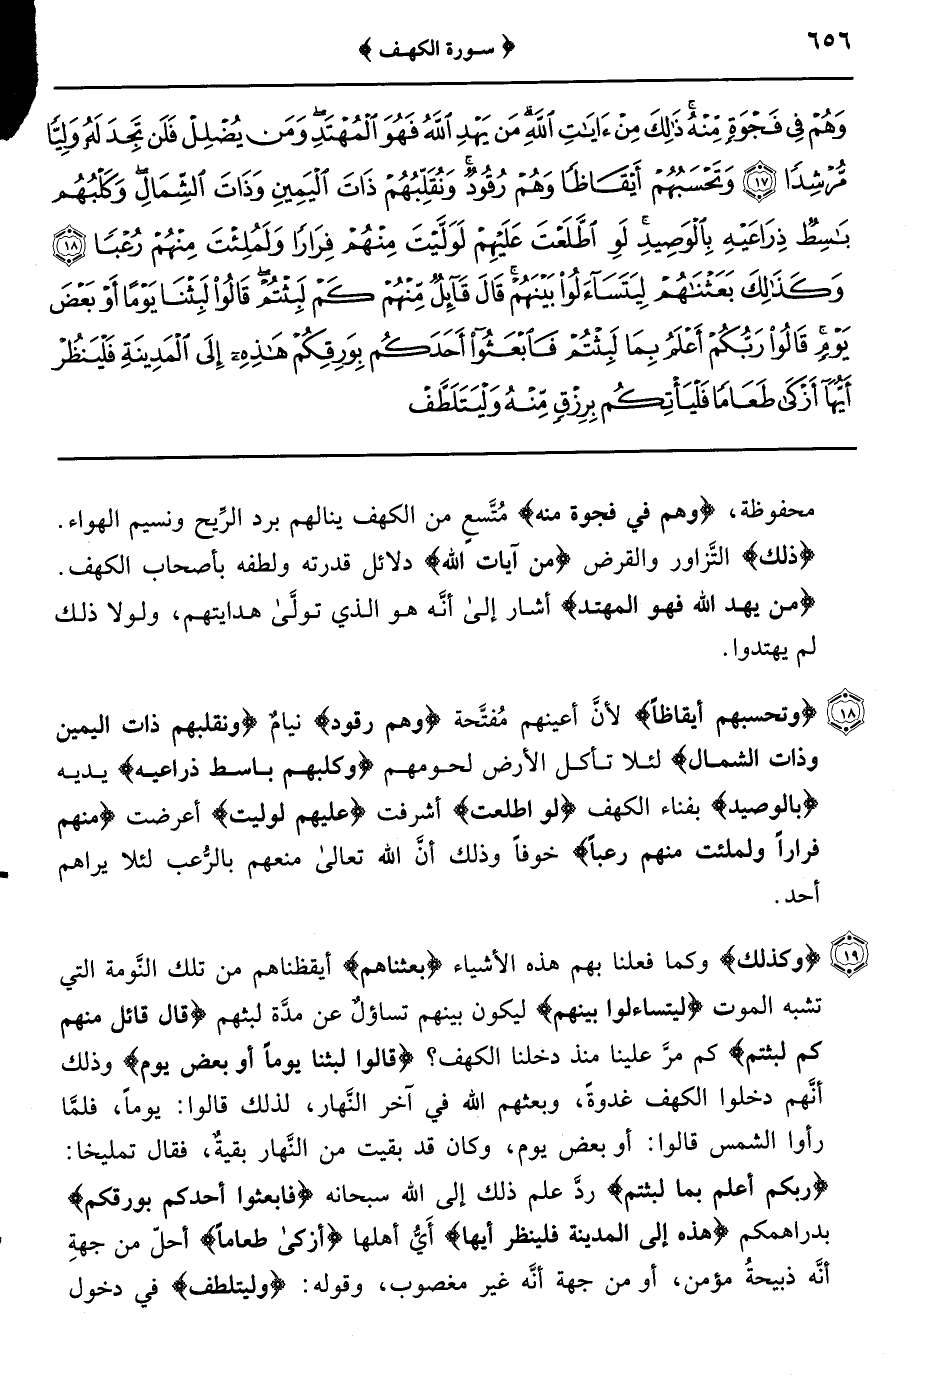 ٦٥٦
﴿ سورة الكهف ﴾
وَهُمْ فِى فَجْوَةٍ مِّنْهُ ۚ ذَٰلِكَ مِنْ ءَايَـٰتِ ٱللَّهِ ۗ مَن يَهْدِ ٱللَّهُ فَهُوَ ٱلْمُهْتَدِ ۖ وَمَن يُضْلِلْ فَلَن تَجِدَ لَهُۥ وَلِيًّا
مُّرْشِدًا ﴿١٧﴾ وَتَحْسَبُهُمْ أَيْقَاظًا وَهُمْ رُقُودٌ ۚ وَنُقَلِّبُهُمْ ذَاتَ ٱلْيَمِينِ وَذَاتَ ٱلشِّمَالِ ۖ وَكَلْبُهُم
بَـٰسِطٌ ذِرَاعَيْهِ بِٱلْوَصِيدِ ۚ لَوِ ٱطَّلَعْتَ عَلَيْهِمْ لَوَلَّيْتَ مِنْهُمْ فِرَارًا وَلَمُلِئْتَ مِنْهُمْ رُعْبًا ﴿١٨﴾
وَكَذَٰلِكَ بَعَثْنَـٰهُمْ لِيَتَسَآءَلُوا۟ بَيْنَهُمْ ۚ قَالَ قَآئِلٌ مِّنْهُمْ كَمْ لَبِثْتُمْ ۖ قَالُوا۟ لَبِثْنَا يَوْمًا أَوْ بَعْضَ
يَوْمٍ ۚ قَالُوا۟ رَبُّكُمْ أَعْلَمُ بِمَا لَبِثْتُمْ فَٱبْعَثُوٓا۟ أَحَدَكُم بِوَرِقِكُمْ هَـٰذِهِۦٓ إِلَى ٱلْمَدِينَةِ فَلْيَنظُرْ
أَيُّهَآ أَزْكَىٰ طَعَامًا فَلْيَأْتِكُم بِرِزْقٍ مِّنْهُ وَلْيَتَلَطَّفْ
محفوظة، ﴿وهم في فجوة منه﴾ مُتَّسعٍ من الكهف ينالهم برد الرِّيح ونسيم الهواء.
﴿ذلك﴾ التَّزاور والقرض ﴿من آيات الله﴾ دلائل قدرته ولطفه بأصحاب الكهف.
﴿من يهد الله فهو المهتد﴾ أشار إلىٰ أنَّه هو الذي تولَّىٰ هدايتهم، ولولا ذلك
لم يهتدوا.
﴿١٨﴾ ﴿وتحسبهم أيقاظاً﴾ لأنَّ أعينهم مُفتَّحة ﴿وهم رقود﴾ نيامٌ ﴿ونقلبهم ذات اليمين
وذات الشمال﴾ لئلا تأكل الأرض لحومهم ﴿وكلبهم باسط ذراعيه﴾ يديه
﴿بالوصيد﴾ بفناء الكهف ﴿لو اطلعت﴾ أشرفت ﴿عليهم لوليت﴾ أعرضت ﴿منهم
فراراً ولملئت منهم رعباً﴾ خوفاً وذلك أنَّ الله تعالىٰ منعهم بالرُّعب لئلا يراهم
أحد.
﴿١٩﴾ ﴿وكذلك﴾ وكما فعلنا بهم هذه الأشياء ﴿بعثناهم﴾ أيقظناهم من تلك النَّومة التي
تشبه الموت ﴿ليتساءلوا بينهم﴾ ليكون بينهم تساؤلٌ عن مدَّة لبثهم ﴿قال قائل منهم
كم لبثتم﴾ كم مرَّ علينا منذ دخلنا الكهف؟ ﴿قالوا لبثنا يوماً أو بعض يوم﴾ وذلك
أنَّهم دخلوا الكهف غدوةً، وبعثهم الله في آخر النَّهار، لذلك قالوا: يوماً، فلمَّا
رأوا الشمس قالوا: أو بعض يوم، وكان قد بقيت من النَّهار بقيةٌ، فقال تمليخا:
﴿ربكم أعلم بما لبثتم﴾ ردَّ علم ذلك إلى الله سبحانه ﴿فابعثوا أحدكم بورقكم﴾
بدراهمكم ﴿هذه إلى المدينة فلينظر أيها﴾ أَيُّ أهلها ﴿أزكىٰ طعاماً﴾ أحلّ من جهةِ
أنَّه ذبيحةُ مؤمن، أو من جهة أنَّه غير مغصوب، وقوله: ﴿وليتلطف﴾ في دخول